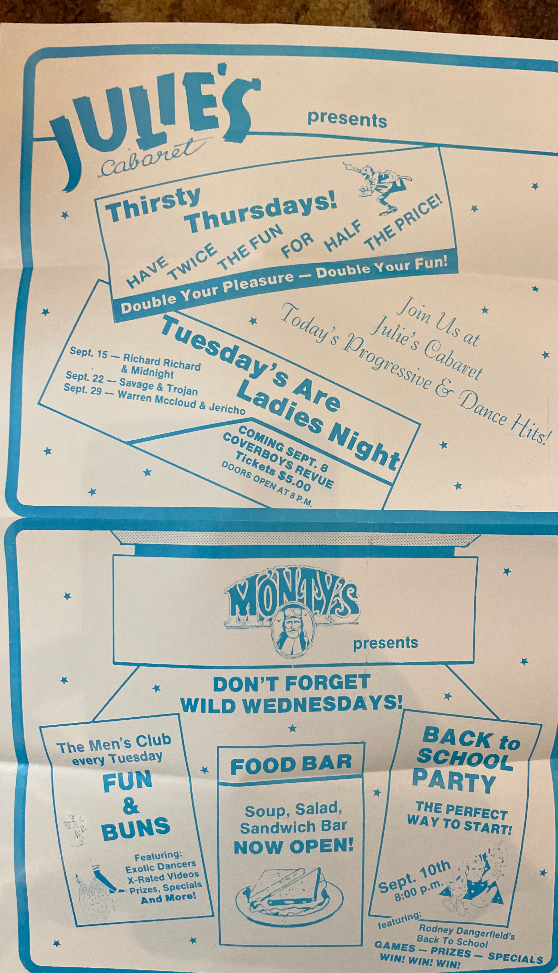 JULIE'S
Cabaret
presents
Thirsty
Thursdays!
HAVE TWICE THE FUN FOR HALF THE PRICE!
Double Your Pleasure — Double Your Fun!
Join Us at
Julie's Cabaret
Today's Progressive & Dance Hits!
Tuesday's Are
Ladies Night
Sept. 15 — Richard Richard
& Midnight
Sept. 22 — Savage & Trojan
Sept. 29 — Warren Mccloud & Jericho
COMING SEPT. 8
COVERBOYS REVUE
Tickets $5.00
DOORS OPEN AT 8 P.M.
MONTY'S
presents
DON'T FORGET
WILD WEDNESDAYS!
The Men's Club
every Tuesday
FUN
&
BUNS
Featuring:
Exotic Dancers
X-Rated Videos
Prizes, Specials
And More!
FOOD BAR
Soup, Salad,
Sandwich Bar
NOW OPEN!
BACK to
SCHOOL
PARTY
THE PERFECT
WAY TO START!
Sept. 10th
8:00 p.m.
featuring:
Rodney Dangerfield's
Back To School
GAMES — PRIZES — SPECIALS
WIN! WIN! WIN!